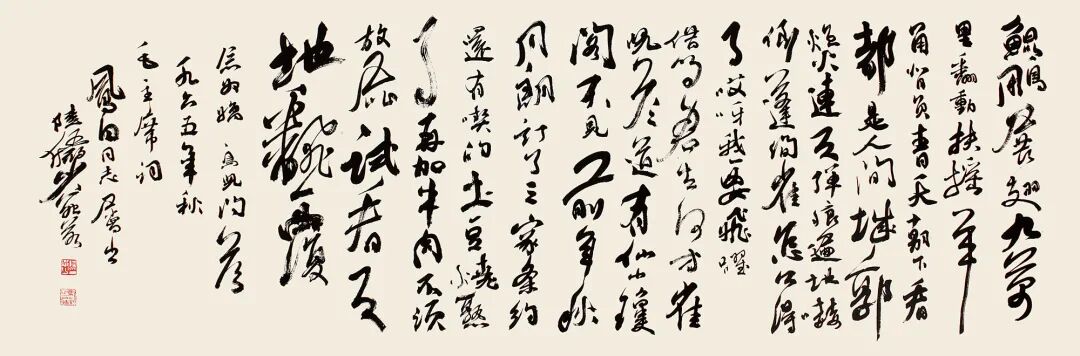 鯤鵬展翅九萬
里翻動扶摇羊
角背負青天朝下看
都是人间城郭
炮火連天弹痕遍地嚇
倒蓬间雀怎么得
了哎呀我要飛躍
借问君去何方雀
儿答道有仙山瓊
阁不見前年秋
月朗訂了三家条约
還有喫的土豆燒熟
了再加牛肉不须
放屁试看天
地翻覆
念奴嬌 鸟儿问答
一九六五年秋
毛主席词
同志属書
陸儼少